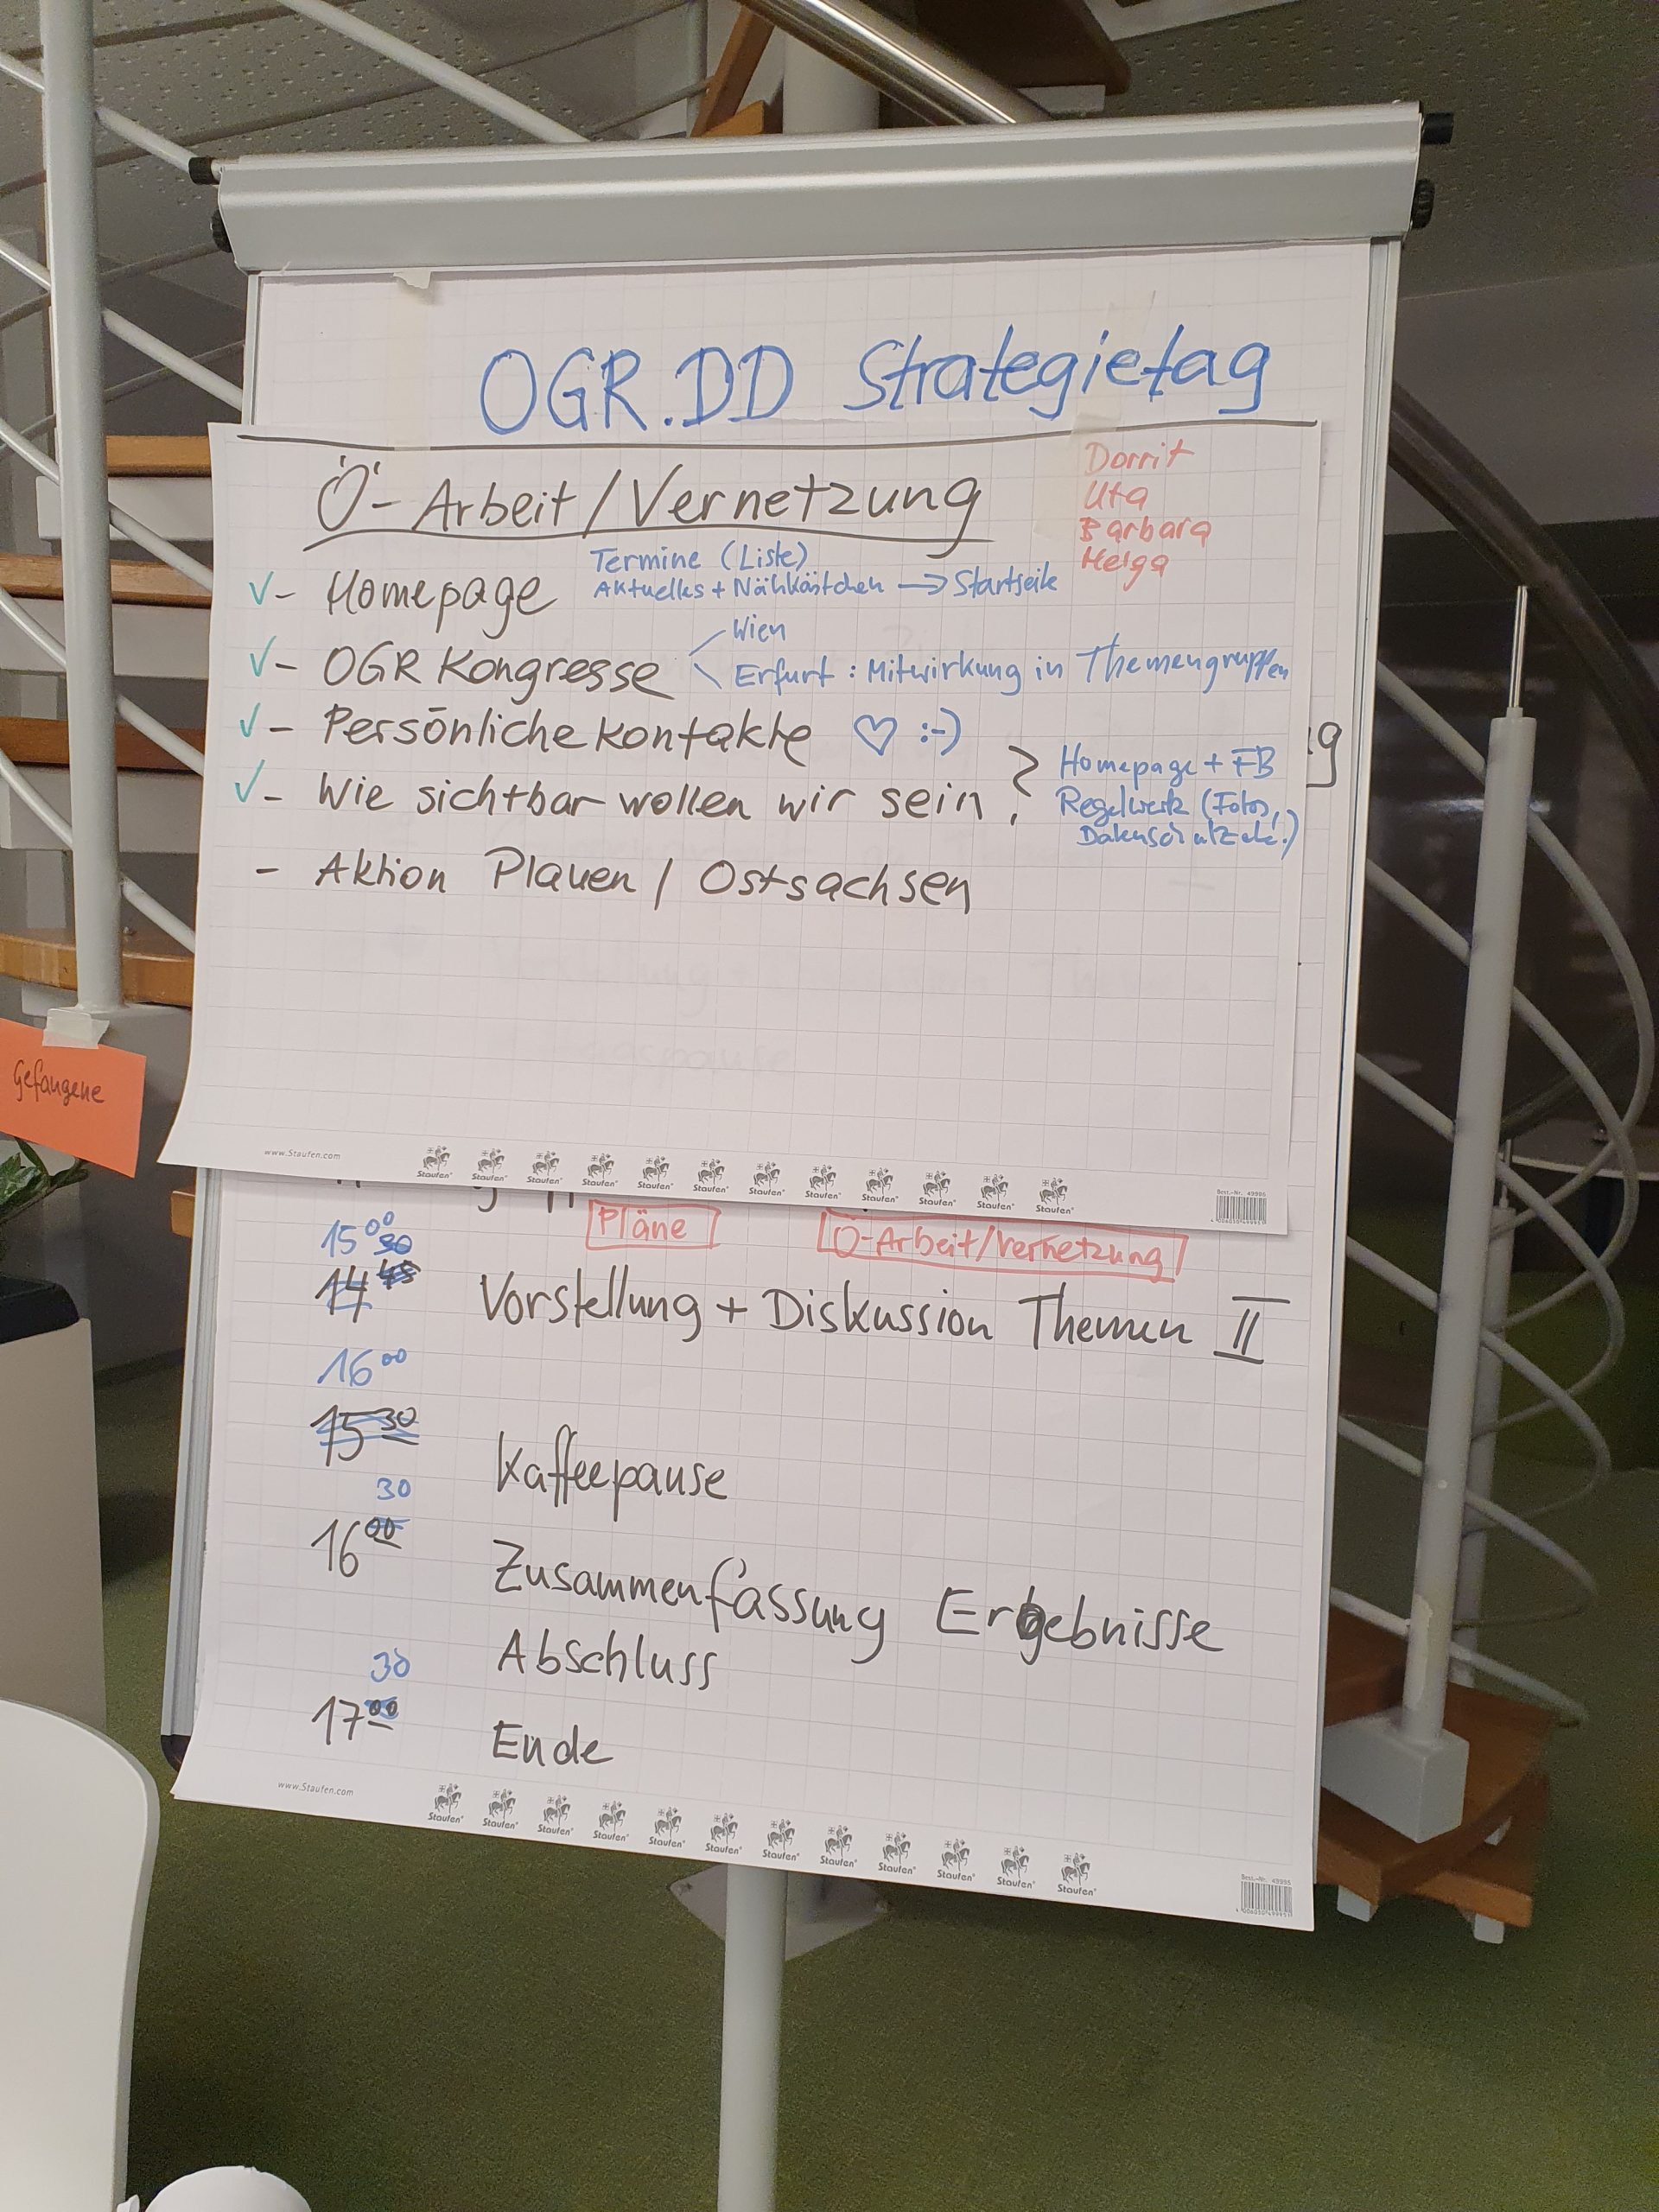 OGR.DD Strategietag
Ö-Arbeit/Vernetzung
Dorrit
Uta
Barbara
Helga
✓- Homepage
Termine (Liste)
Aktuelles + Nähkästchen → Startseite
✓- OGR Kongresse
Wien
Erfurt: Mitwirkung in Themengruppen
✓- Persönliche Kontakte ♡ :-)
✓- Wie sichtbar wollen wir sein?
Homepage + FB
Regelwerk (Fotos,
Datenschutz etc.)
- Aktion Plauen / Ostsachsen
Gefangene
www.Staufen.com
Staufen Staufen Staufen Staufen Staufen Staufen Staufen Staufen Staufen Staufen Staufen Staufen
Best.-Nr. 49905
Pläne Ö-Arbeit/Vernetzung
15 00
30
14 45 Vorstellung + Diskussion Themen II
16 00
15 30 Kaffeepause
30
16 00 Zusammenfassung Ergebnisse
Abschluss
30
17 00 Ende
www.Staufen.com
Staufen Staufen Staufen Staufen Staufen Staufen Staufen Staufen Staufen Staufen Staufen Staufen
Best.-Nr. 49905